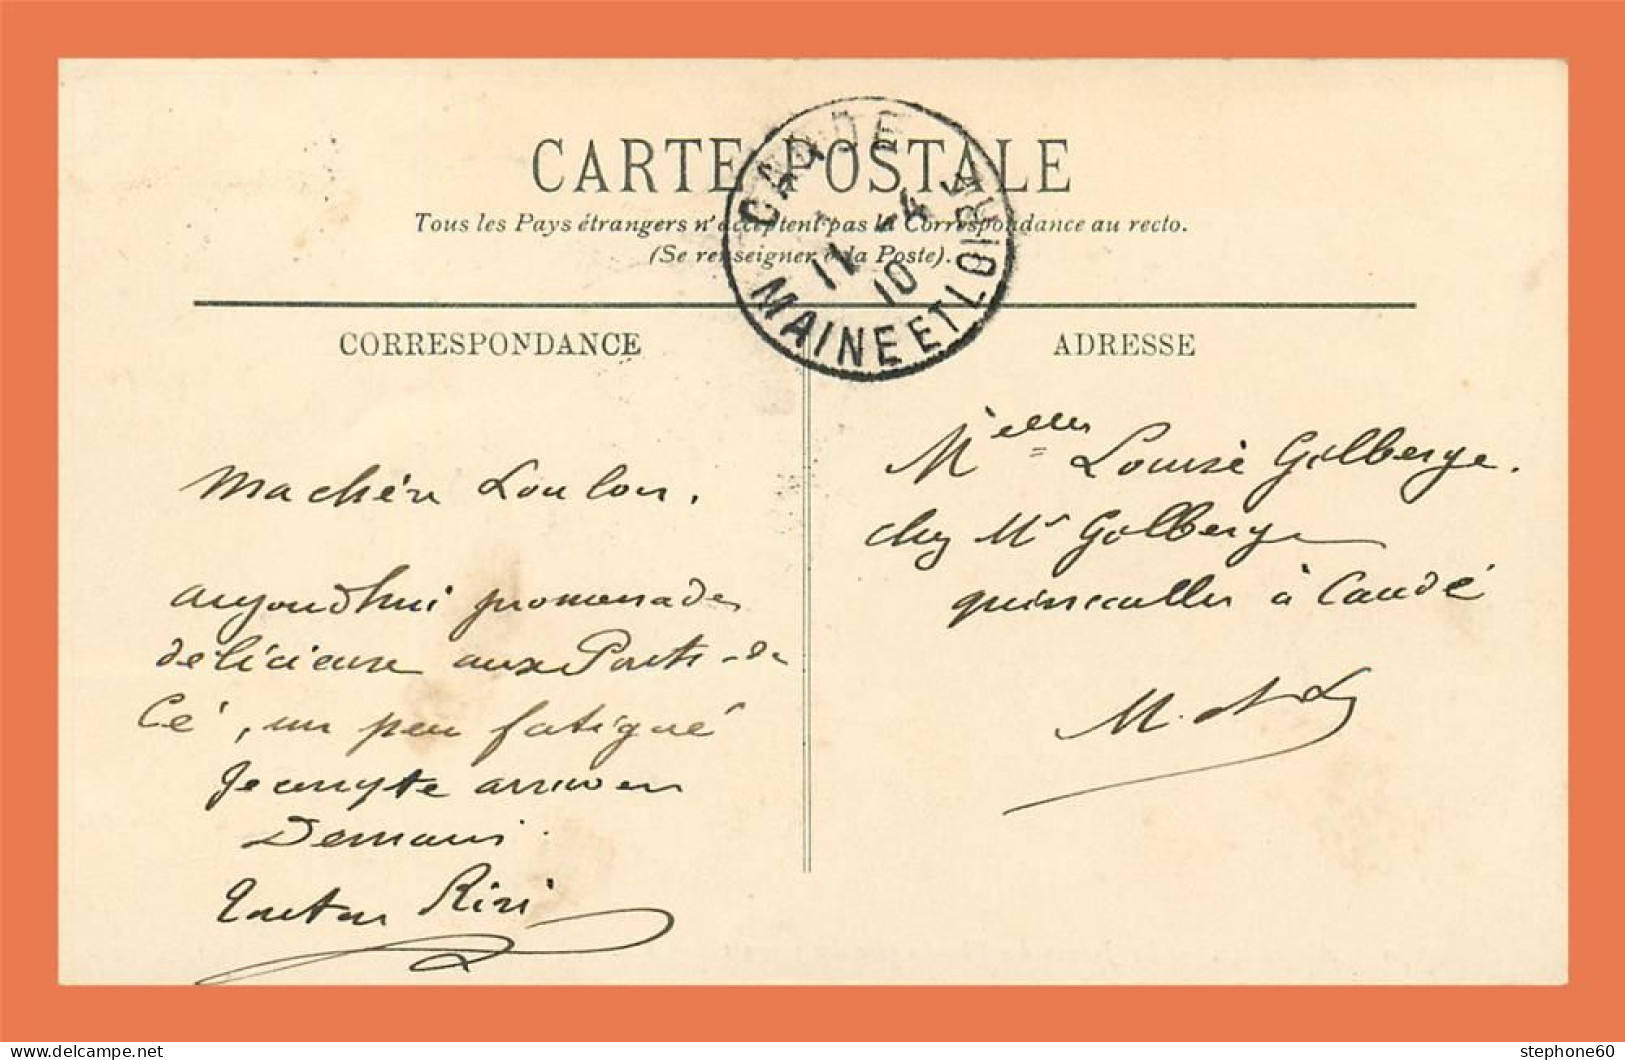 CARTE POSTALE
Tous les Pays étrangers n'acceptent pas la Correspondance au recto.
(Se renseigner à la Poste).
CANDE
11 -4
10
MAINE ET LOIRE
CORRESPONDANCE
ADRESSE
Ma chère Loulou.
aujourdhui promenade
délicieuse aux Ponts-de
Cé, un peu fatigué
Je compte arriver
Demain.
Tonton Riri
Melle Louise Golberge.
chez Mr Golberge
quincailler à Candé
M. et L
stephone60